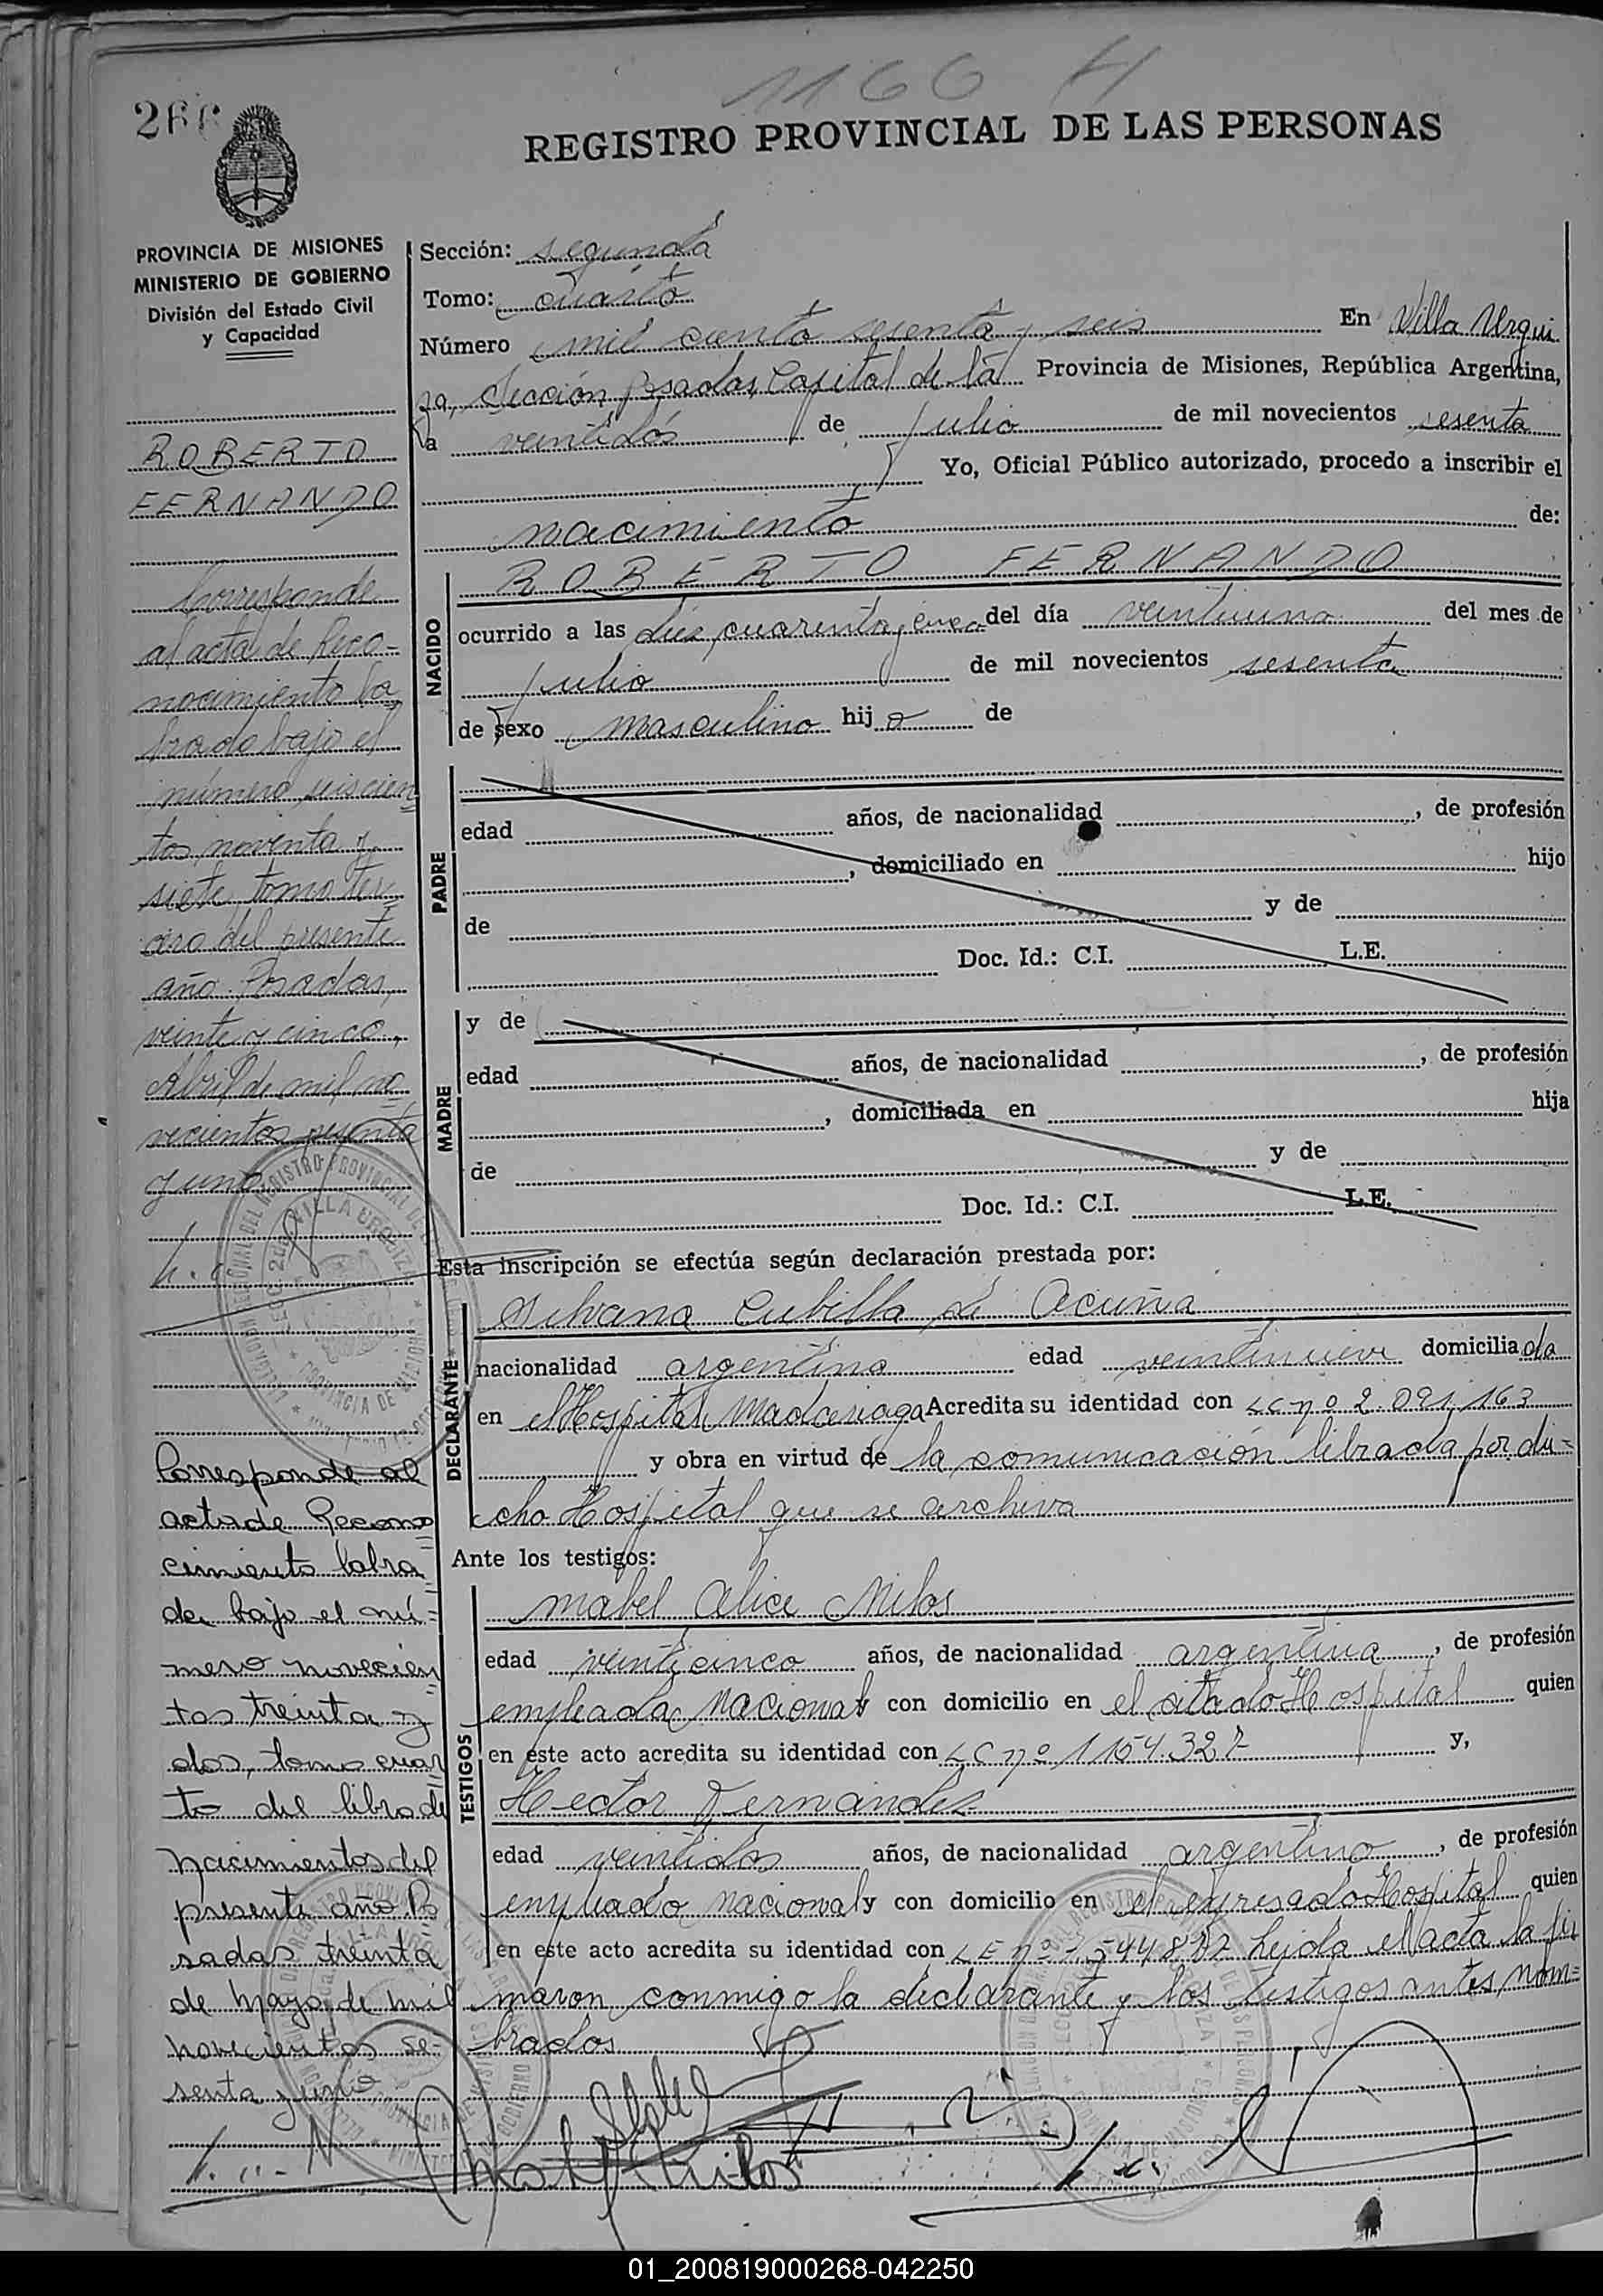 1166 H
266
REGISTRO PROVINCIAL DE LAS PERSONAS
PROVINCIA DE MISIONES
MINISTERIO DE GOBIERNO
División del Estado Civil
y Capacidad
ROBERTO
FERNANDO
Corresponde
al acta de Reco-
nocimiento la
brado bajo el
número seiscien
tos noventa y
siete, tomo ter
cero del presente
año. Posadas,
veinte y cinco,
Abril de mil no
vecientos sesenta
y uno
Corresponde al
acta de Recono
cimiento labra
do bajo el nú=
mero novecien
tos treinta y
dos, tomo cuar
to del libro de
Nacimientos del
presente año. Po
sadas treinta
de Mayo de mil
novecientos se-
senta y uno
Sección: segunda
Tomo: cuarto
Número mil ciento sesenta y seis En Villa Urqui
za, Sección Posadas, Capital de la Provincia de Misiones, República Argentina,
a veintidós de julio de mil novecientos sesenta
Yo, Oficial Público autorizado, procedo a inscribir el
nacimiento de:
NACIDO
ROBERTO FERNANDO
ocurrido a las diez, cuarenta y cinco del día veintiuno del mes de
julio de mil novecientos sesenta
de sexo masculino hijo de
PADRE
edad años, de nacionalidad , de profesión
, domiciliado en hijo
de y de
Doc. Id.: C.I. L.E.
MADRE
y de
edad años, de nacionalidad , de profesión
, domiciliada en hija
de y de
Doc. Id.: C.I. L.E.
Esta inscripción se efectúa según declaración prestada por:
DECLARANTE
Silvana Cubilla de Acuña
nacionalidad argentina edad veintinueve domiciliada
en el Hospital Madariaga Acredita su identidad con LC nº 2.091.163
y obra en virtud de la comunicación librada por di=
cho Hospital que se archiva
Ante los testigos:
TESTIGOS
Mabel Alice Milos
edad veinticinco años, de nacionalidad argentina, de profesión
empleada Nacional y con domicilio en el citado Hospital quien
en este acto acredita su identidad con LC nº 1154.327 y,
Hector Fernandez
edad veintidos años, de nacionalidad argentino, de profesión
empleado nacional y con domicilio en el expresado Hospital quien
en este acto acredita su identidad con LE nº Leída el acta la fir
maron conmigo la declarante y los testigos antes nom=
brados
01_200819000268-042250